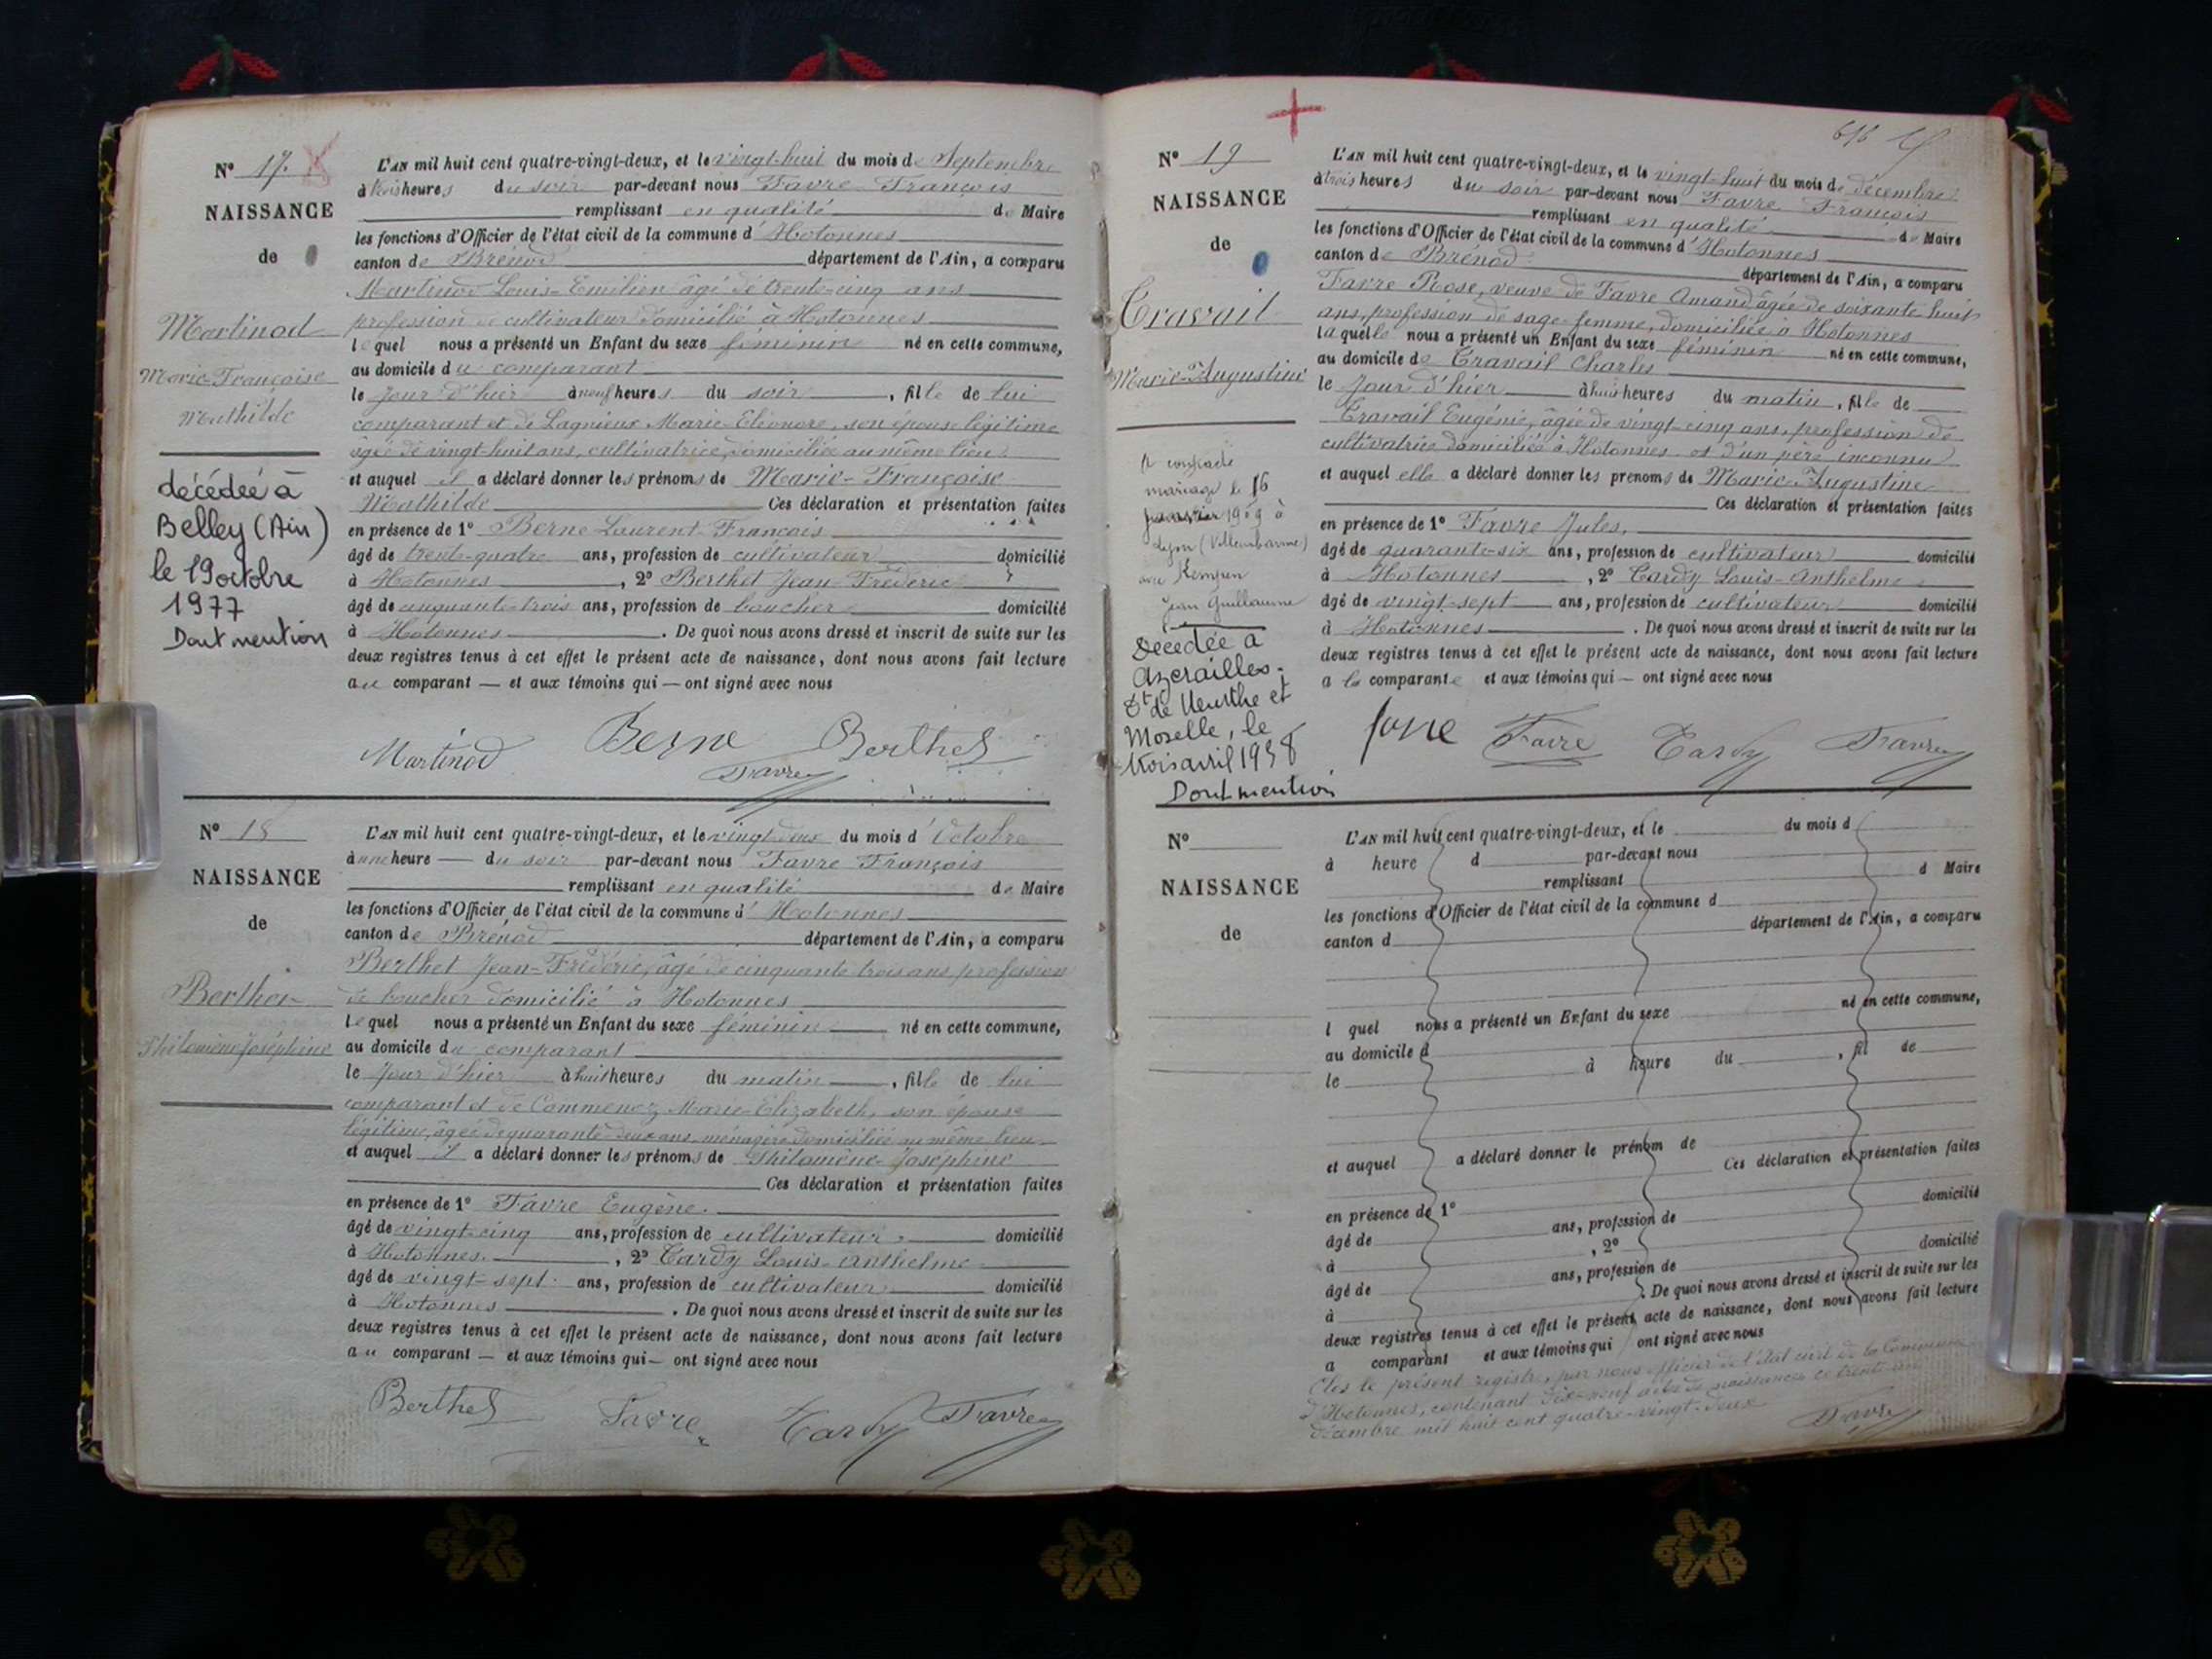 N° 17.
NAISSANCE
de
Martinod
Marie-Françoise
Mathilde
décédée à
Belley (Ain)
le 19 octobre
1977
Dont mention
L'AN mil huit cent quatre-vingt-deux, et le vingt-huit du mois de Septembre
à trois heures du soir par-devant nous Favre François
remplissant en qualité de Maire
les fonctions d'Officier de l'état civil de la commune d'Hotonnes
canton de Brénod département de l'Ain, a comparu
Martinod Louis-Emilien âgé de trente-cinq ans
profession de cultivateur domicilié à Hotonnes
lequel nous a présenté un Enfant du sexe féminin né en cette commune,
au domicile du comparant
le jour d'hier à neuf heures du soir, fille de lui
comparant et de Lagnieux Marie-Eléonore, son épouse légitime
âgée de vingt-huit ans, cultivatrice, domiciliée au même lieu.
et auquel il a déclaré donner les prénoms de Marie-Françoise
Mathilde Ces déclaration et présentation faites
en présence de 1° Berne Laurent-François
âgé de trente-quatre ans, profession de cultivateur domicilié
à Hotonnes, 2° Berthet Jean-Fréderic
âgé de cinquante-trois ans, profession de boucher domicilié
à Hotonnes. De quoi nous avons dressé et inscrit de suite sur les
deux registres tenus à cet effet le présent acte de naissance, dont nous avons fait lecture
au comparant — et aux témoins qui — ont signé avec nous
Martinod Berne Berthet
Favre
N° 18
NAISSANCE
de
Berthet
Philomène Joséphine
L'AN mil huit cent quatre-vingt-deux, et le vingt-deux du mois d'Octobre
à une heure — du soir par-devant nous Favre François
remplissant en qualité de Maire
les fonctions d'Officier de l'état civil de la commune d'Hotonnes
canton de Brénod département de l'Ain, a comparu
Berthet Jean-Fréderic, âgé de cinquante trois ans, profession
de boucher domicilié à Hotonnes
lequel nous a présenté un Enfant du sexe féminin né en cette commune,
au domicile du comparant
le jour d'hier à huit heures du matin, fille de lui
comparant et de Marie-Elizabeth, son épouse
légitime, âgée de quarante-deux ans, ménagère domiciliée au même lieu
et auquel il a déclaré donner les prénoms de Philomène-Joséphine
Ces déclaration et présentation faites
en présence de 1° Favre Eugène.
âgé de vingt-cinq ans, profession de cultivateur domicilié
à Hotonnes, 2° Tardy Louis-Anthelme
âgé de vingt-sept ans, profession de cultivateur domicilié
à Hotonnes. De quoi nous avons dressé et inscrit de suite sur les
deux registres tenus à cet effet le présent acte de naissance, dont nous avons fait lecture
au comparant — et aux témoins qui — ont signé avec nous
Berthet Favre Tardy Favre
N° 19
NAISSANCE
de
Travail
Marie-Augustine
A contracté
mariage le 16
janvier 1909 à
Lyon (Villeurbanne)
avec Kempen
Jean Guillaume
Décédée à
Azerailles,
Dt de Meurthe et
Moselle, le
trois avril 1958
Dont mention
L'AN mil huit cent quatre-vingt-deux, et le vingt-huit du mois de décembre
à trois heures du soir par-devant nous Favre François
remplissant en qualité de Maire
les fonctions d'Officier de l'état civil de la commune d'Hotonnes
canton de Brénod département de l'Ain, a comparu
Favre Rose, veuve de Favre Amand âgée de soixante huit
ans, profession de sage-femme, domiciliée à Hotonnes
laquelle nous a présenté un Enfant du sexe féminin né en cette commune,
au domicile de Travail Charles
le jour d'hier à huit heures du matin, fille de
Travail Eugénie, âgée de vingt-cinq ans, profession de
cultivatrice domiciliée à Hotonnes et d'un père inconnu
et auquel elle a déclaré donner les prénoms de Marie-Augustine
Ces déclaration et présentation faites
en présence de 1° Favre Jules,
âgé de quarante-six ans, profession de cultivateur domicilié
à Hotonnes, 2° Tardy Louis-Anthelme
âgé de vingt-sept ans, profession de cultivateur domicilié
à Hotonnes. De quoi nous avons dressé et inscrit de suite sur les
deux registres tenus à cet effet le présent acte de naissance, dont nous avons fait lecture
a la comparante et aux témoins qui — ont signé avec nous
Favre Tardy Favre
N°
NAISSANCE
de
L'AN mil huit cent quatre-vingt-deux, et le du mois d
à heure d par-devant nous
remplissant d Maire
les fonctions d'Officier de l'état civil de la commune d
canton d département de l'Ain, a comparu
l quel nous a présenté un Enfant du sexe né en cette commune,
au domicile d
le à heure du , fil de
et auquel a déclaré donner le prénom de
Ces déclaration et présentation faites
en présence de 1°
âgé de ans, profession de domicilié
à , 2°
âgé de ans, profession de domicilié
à . De quoi nous avons dressé et inscrit de suite sur les
deux registres tenus à cet effet le présent acte de naissance, dont nous avons fait lecture
a comparant et aux témoins qui ont signé avec nous
Clos le présent registre, par nous officier de l'état civil de la Commune
d'Hotonnes, contenant dix-neuf actes de naissances ce trente-un
décembre mil huit cent quatre-vingt-deux
Favre